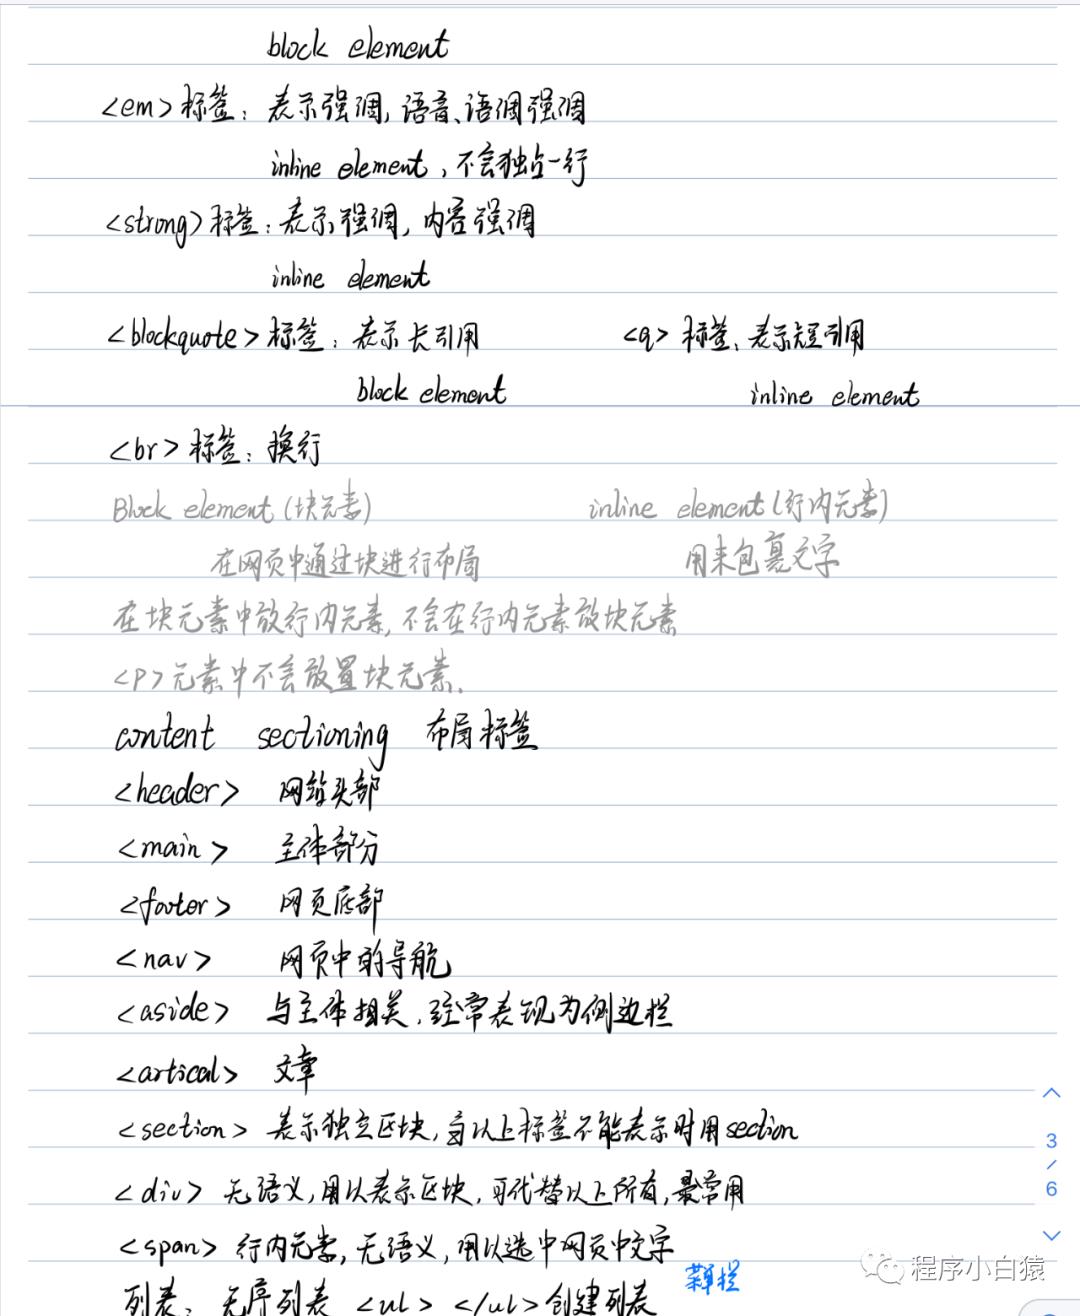 block element
<em>标签：表示强调，语音、语调强调
inline element，不会独占一行
<strong>标签：表示强调，内容强调
inline element
<blockquote>标签：表示长引用 <q>标签、表示短引用
block element inline element
<br>标签：换行
Block element (块元素) inline element (行内元素)
在网页中通过块进行布局 用来包裹文字
在块元素中放行内元素，不会在行内元素放块元素
<p>元素中不会放置块元素.
content sectioning 布局标签
<header> 网站头部
<main> 主体部分
<footer> 网页底部
<nav> 网页中的导航
<aside> 与主体相关，经常表现为侧边栏
<artical> 文章
<section> 表示独立区块，当以上标签不能表示时用section
<div> 无语义，用以表示区块，可代替以上所有，最常用
<span> 行内元素，无语义，用以选中网页中文字
列表：无序列表 <ul> </ul>创建列表 菜单栏
3
/
6
程序小白猿